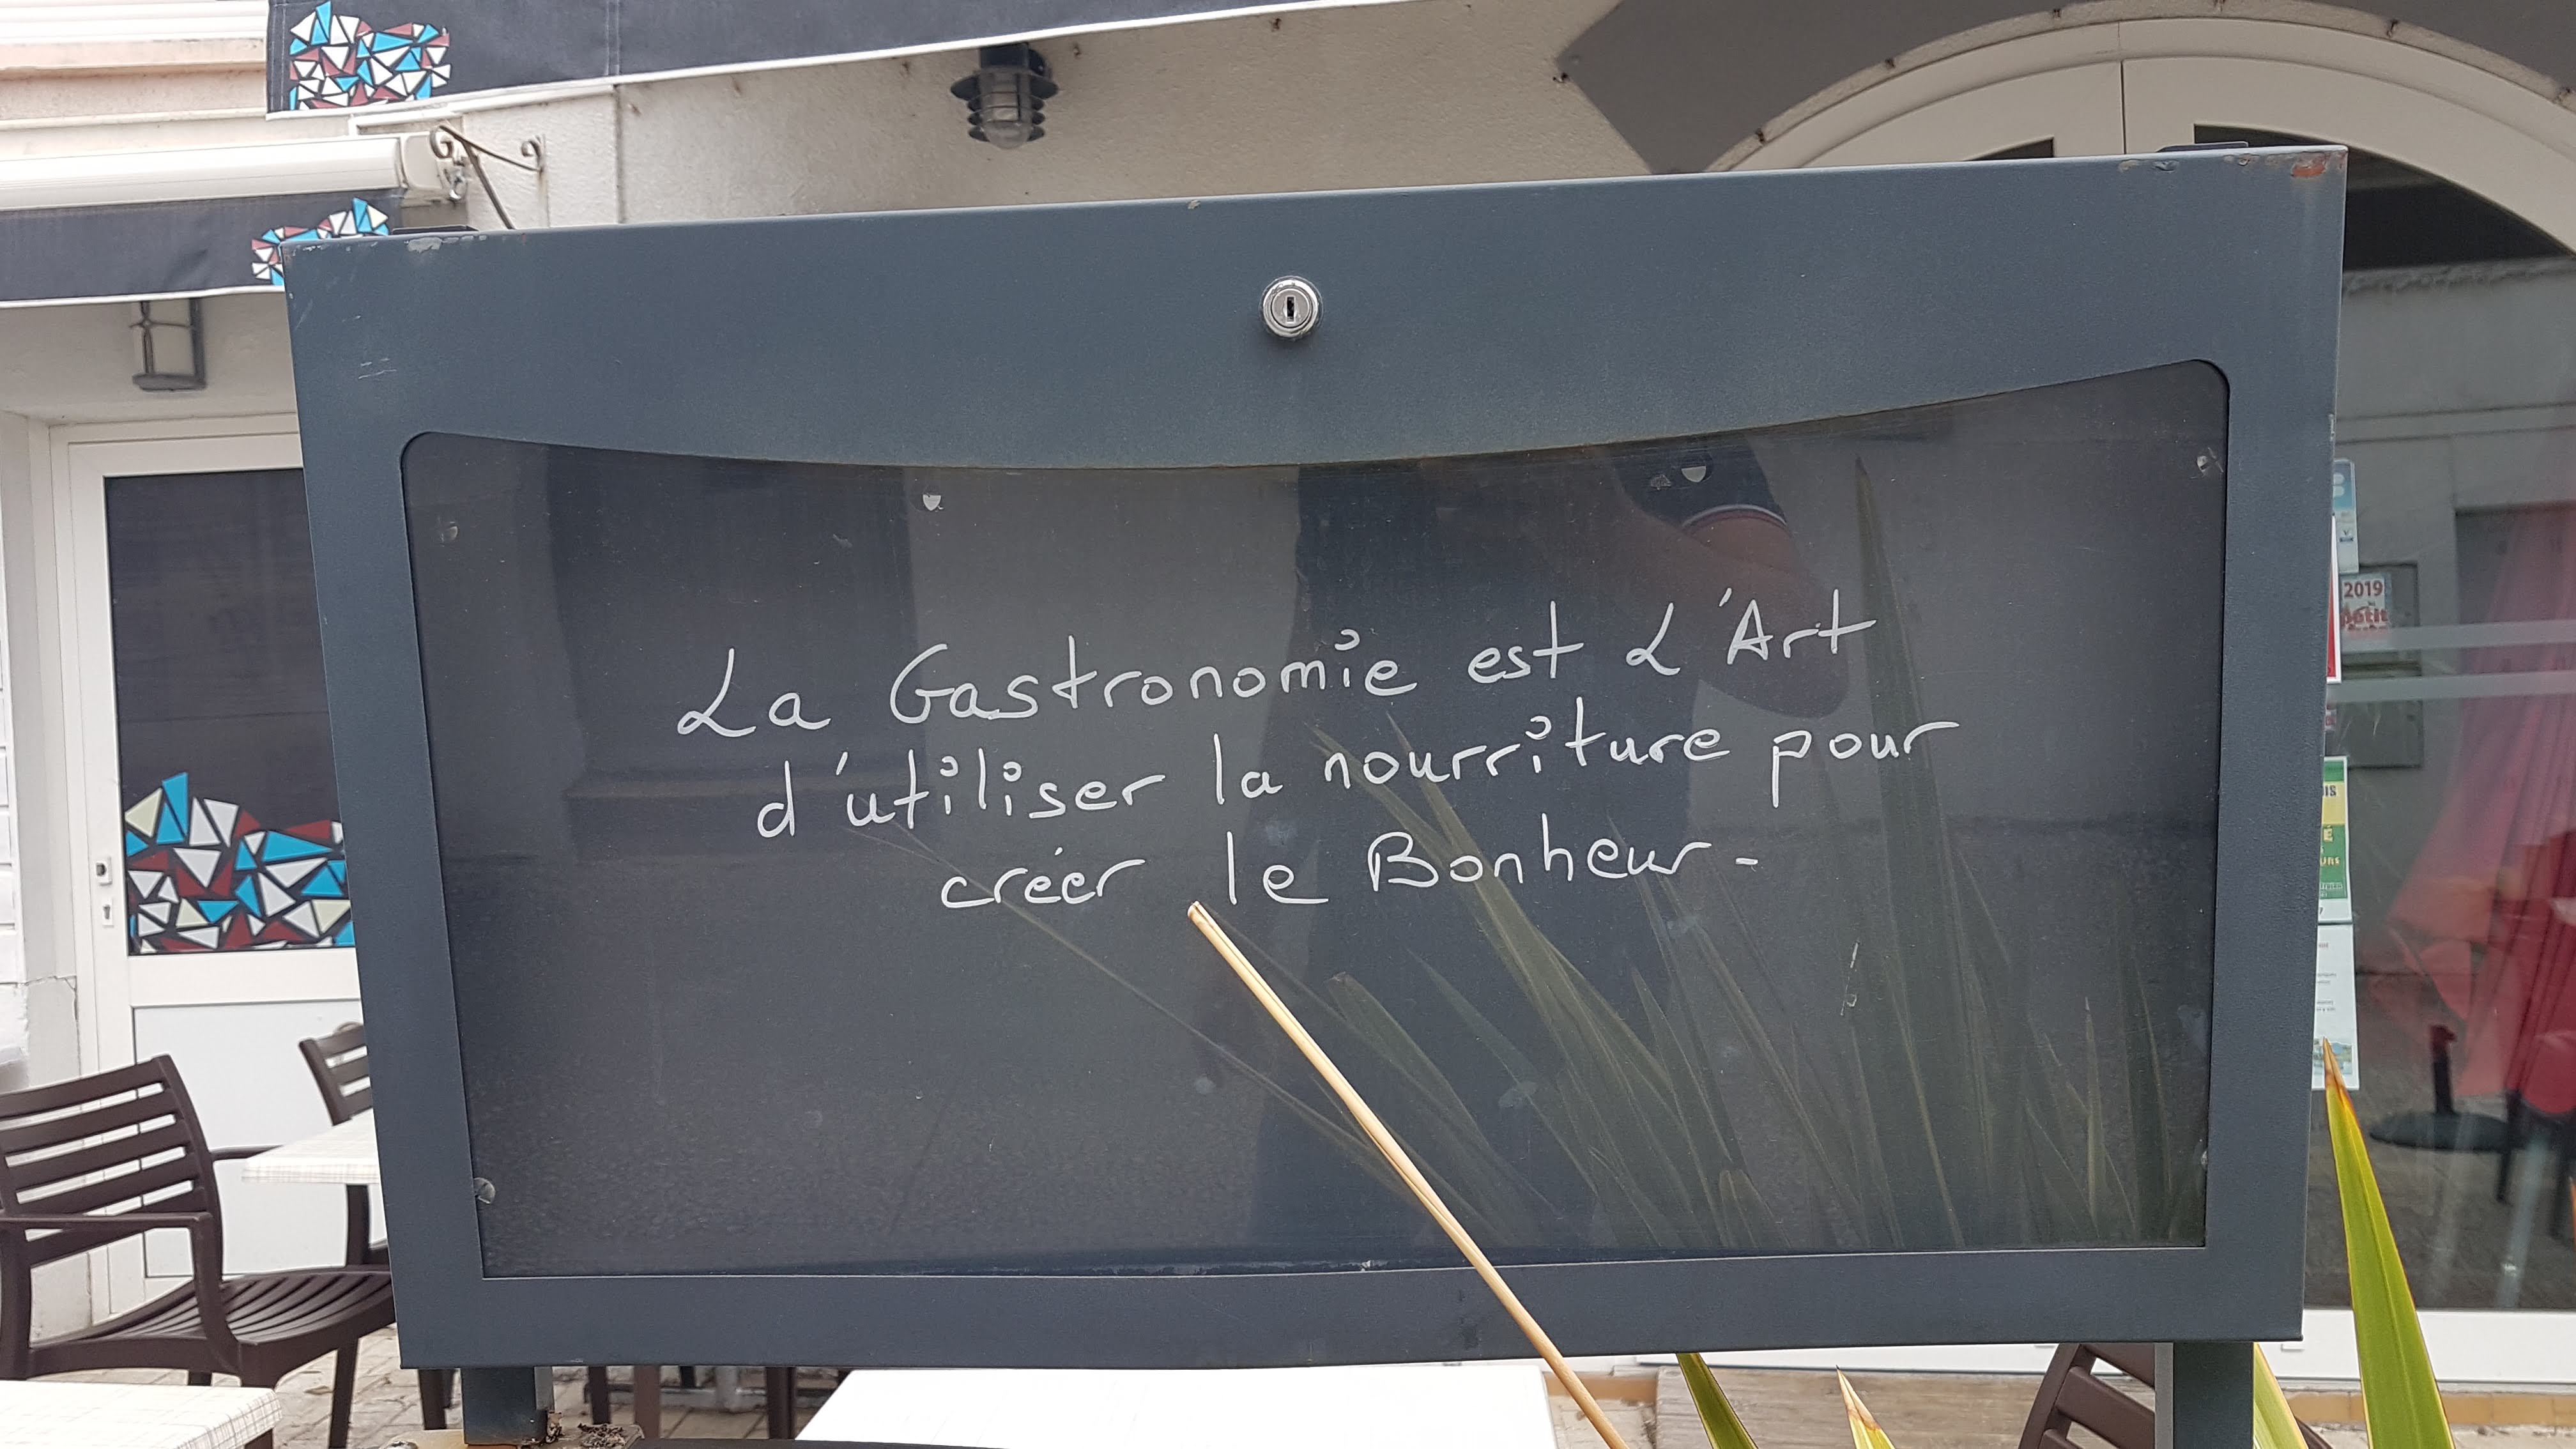 La Gastronomie est L'Art
d'utiliser la nourriture pour
créer le Bonheur-
2019
Petit